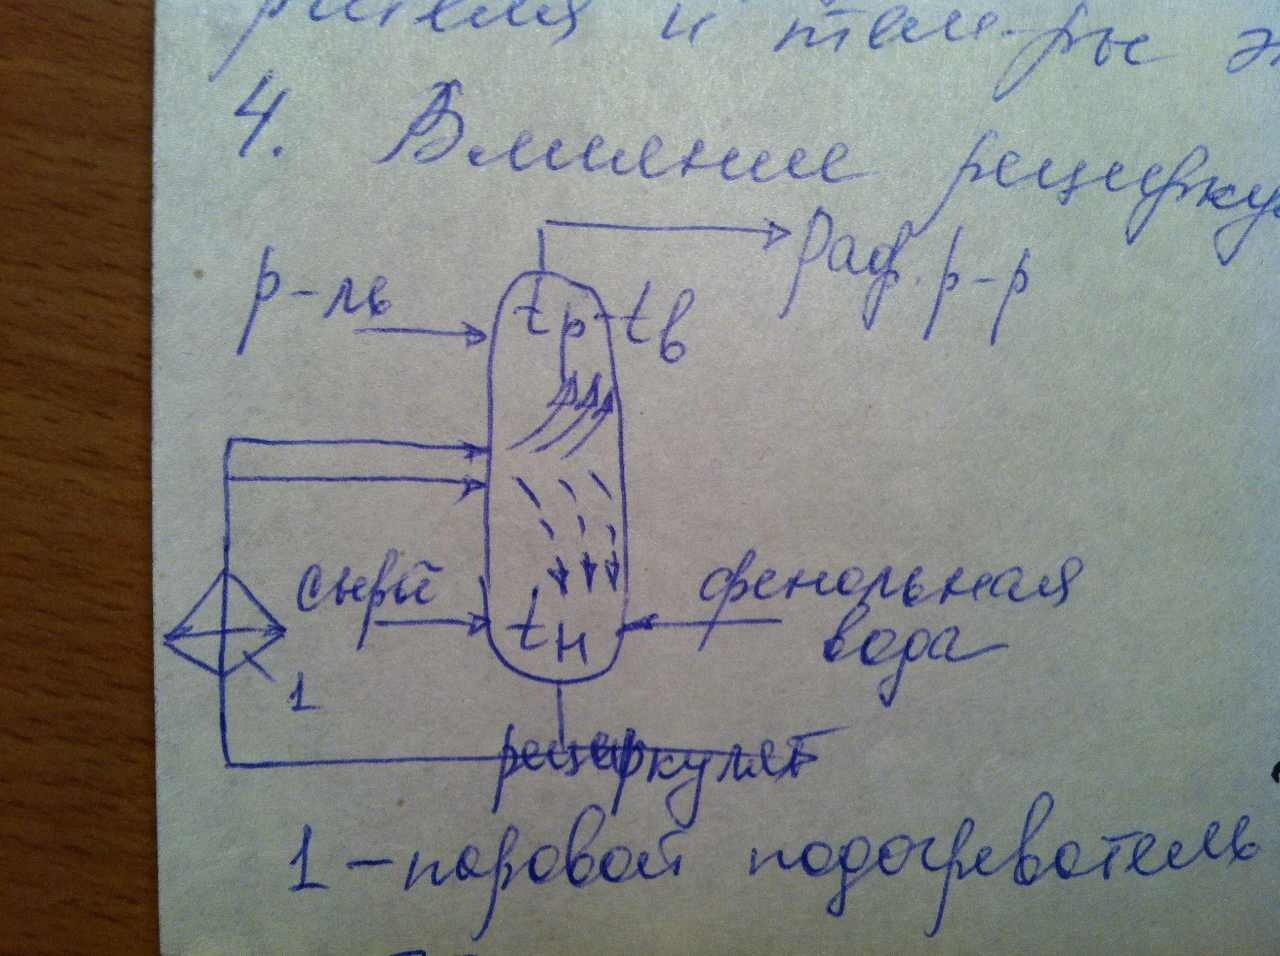 и тем-ры
4. Влияние рецирку
Раф. р-р
р-ль
tр tв
сырьё
фенольная
вода
tн
1
рециркулят
1 - паровой подогреватель